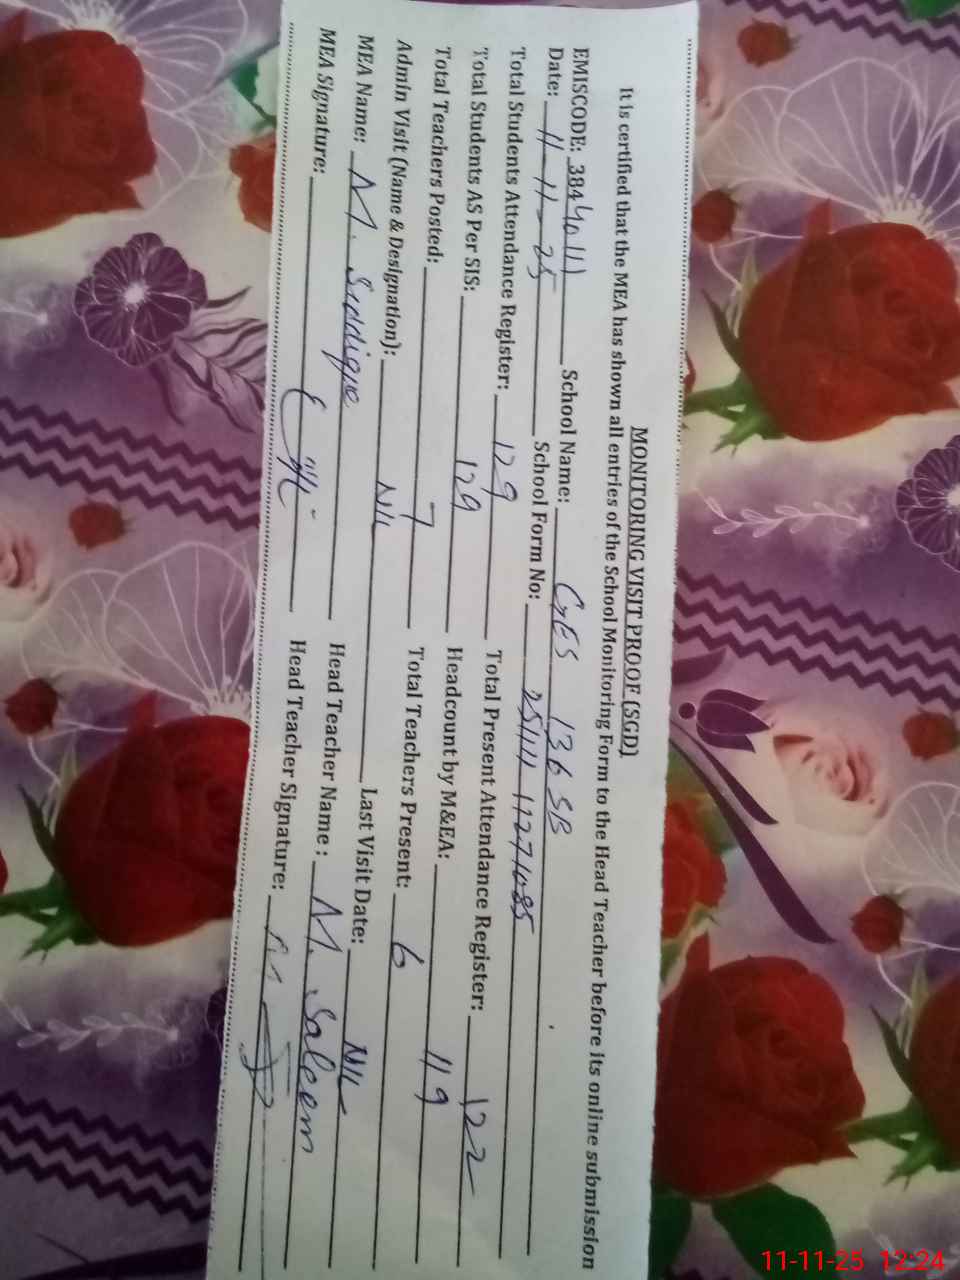 MONITORING VISIT PROOF (SGD)
It is certified that the MEA has shown all entries of the School Monitoring Form to the Head Teacher before its online submission
EMISCODE: 38440111 School Name: GES 136 SB
Date: 11-11-25 School Form No: 251111 11271085
Total Students Attendance Register: 129 Total Present Attendance Register: 122
Total Students AS Per SIS: 129 Headcount by M&EA: 119
Total Teachers Posted: 7 Total Teachers Present: 6
Admin Visit (Name & Designation): NIL Last Visit Date: NIL
MEA Name: M. Siddique Head Teacher Name : M. Saleem
MEA Signature: Head Teacher Signature:
11-11-25 12:24